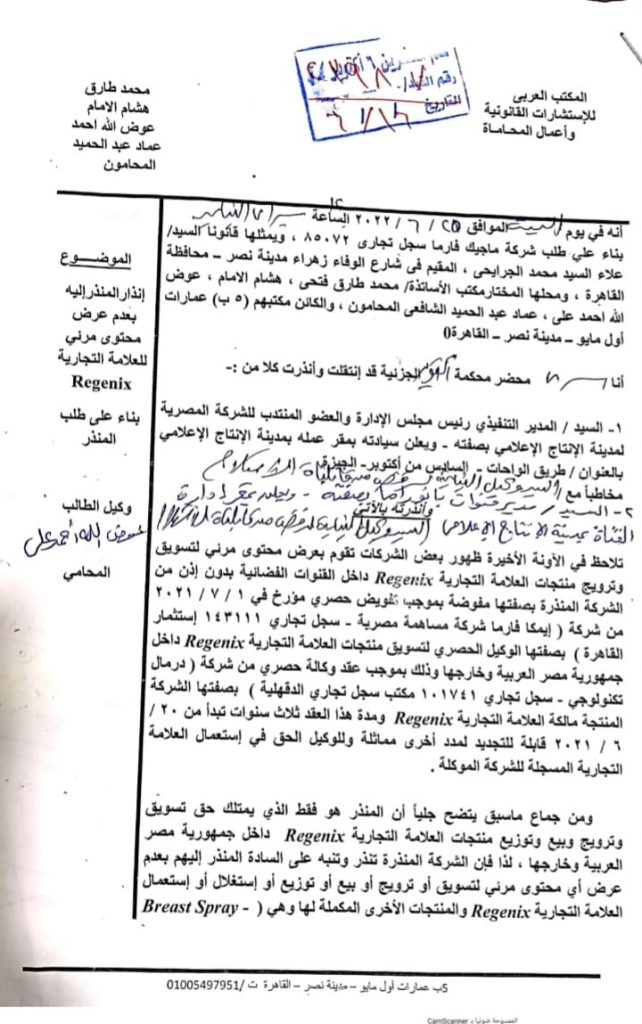 المكتب العربى
للإستشارات القانونية
وأعمال المحاماة
محمد طارق
هشام الامام
عوض الله احمد
عماد عبد الحميد
المحامون
التاريخ
أنه في يوم السبت الموافق ٢٥ / ٦ / ٢٠٢٢ الساعة
بناء علي طلب شركة ماجيك فارما سجل تجارى ٨٥٠٧٢ ، ويمثلها قانونا السيد/
علاء السيد محمد الجرايحى ، المقيم فى شارع الوفاء زهراء مدينة نصر – محافظة
القاهرة ، ومحلها المختارمكتب الأساتذة/ محمد طارق فتحى ، هشام الامام ، عوض
الله احمد على ، عماد عبد الحميد الشافعى المحامون ، والكائن مكتبهم (٥ ب) عمارات
أول مايو – مدينة نصر – القاهرة0
أنا محضر محكمة الجزئية قد إنتقلت وأنذرت كلا من :-
١- السيد / المدير التنفيذي رئيس مجلس الإدارة والعضو المنتدب للشركة المصرية
لمدينة الإنتاج الإعلامي بصفته – ويعلن سيادته بمقر عمله بمدينة الإنتاج الإعلامي
بالعنوان / طريق الواحات – السادس من أكتوبر- الجيزة
مخاطباً مع /
٢- السيد / مدير قنوات بانوراما بصفته - ويعلن بمقر إدارة
القناة بمدينة الإنتاج الإعلامي
وأنذرته بالأتى
تلاحظ في الآونة الأخيرة ظهور بعض الشركات تقوم بعرض محتوى مرئي لتسويق
وترويج منتجات العلامة التجارية Regenix داخل القنوات الفضائية بدون إذن من
الشركة المنذرة بصفتها مفوضة بموجب تفويض حصري مؤرخ في ١ / ٧ / ٢٠٢١
من شركة ( إيمكا فارما شركة مساهمة مصرية - سجل تجاري ١٤٣١١١ إستثمار
القاهرة ) بصفتها الوكيل الحصري لتسويق منتجات العلامة التجارية Regenix داخل
جمهورية مصر العربية وخارجها وذلك بموجب عقد وكالة حصري من شركة ( درمال
تكنولوجي - سجل تجاري ١٠١٧٤١ مكتب سجل تجاري الدقهلية ) بصفتها الشركة
المنتجة مالكة العلامة التجارية Regenix ومدة هذا العقد ثلاث سنوات تبدأ من ٢٠ /
٦ / ٢٠٢١ قابلة للتجديد لمدد أخرى مماثلة وللوكيل الحق في إستعمال العلامة
التجارية المسجلة للشركة الموكلة .
ومن جماع ماسبق يتضح جلياً أن المنذر هو فقط الذي يمتلك حق تسويق
وترويج وبيع وتوزيع منتجات العلامة التجارية Regenix داخل جمهورية مصر
العربية وخارجها ، لذا فإن الشركة المنذرة تنذر وتنبه على السادة المنذر إليهم بعدم
عرض أي محتوى مرئي لتسويق أو ترويج أو بيع أو توزيع أو إستغلال أو إستعمال
العلامة التجارية Regenix والمنتجات الأخرى المكملة لها وهي ( Breast Spray -
الموضـــوع
إنذار المنذر إليه
بعدم عرض
محتوى مرئي
للعلامة التجارية
Regenix
بناء على طلب
المنذر
وكيل الطالب
عوض الله أحمد على
المحامي
5ب عمارات أول مايو – مدينة نصر – القاهرة ت /01005497951
الممسوحة ضوئيا بـ CamScanner